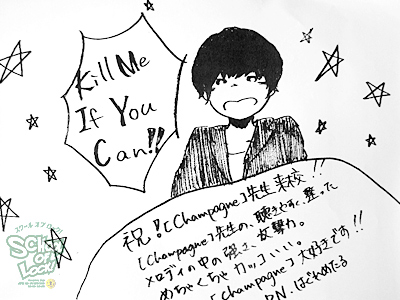 Kill Me
If You
Can!!
祝![Champagne]先生来校!!
[Champagne]先生の、聴きやすく整った
メロディの中の強さ、攻撃力。
めちゃくちゃカッコいい。
[Champagne]大好きです!!
PN.はぐれめたる
スクール オブ ロック!
SCHOOL OF LOCK!